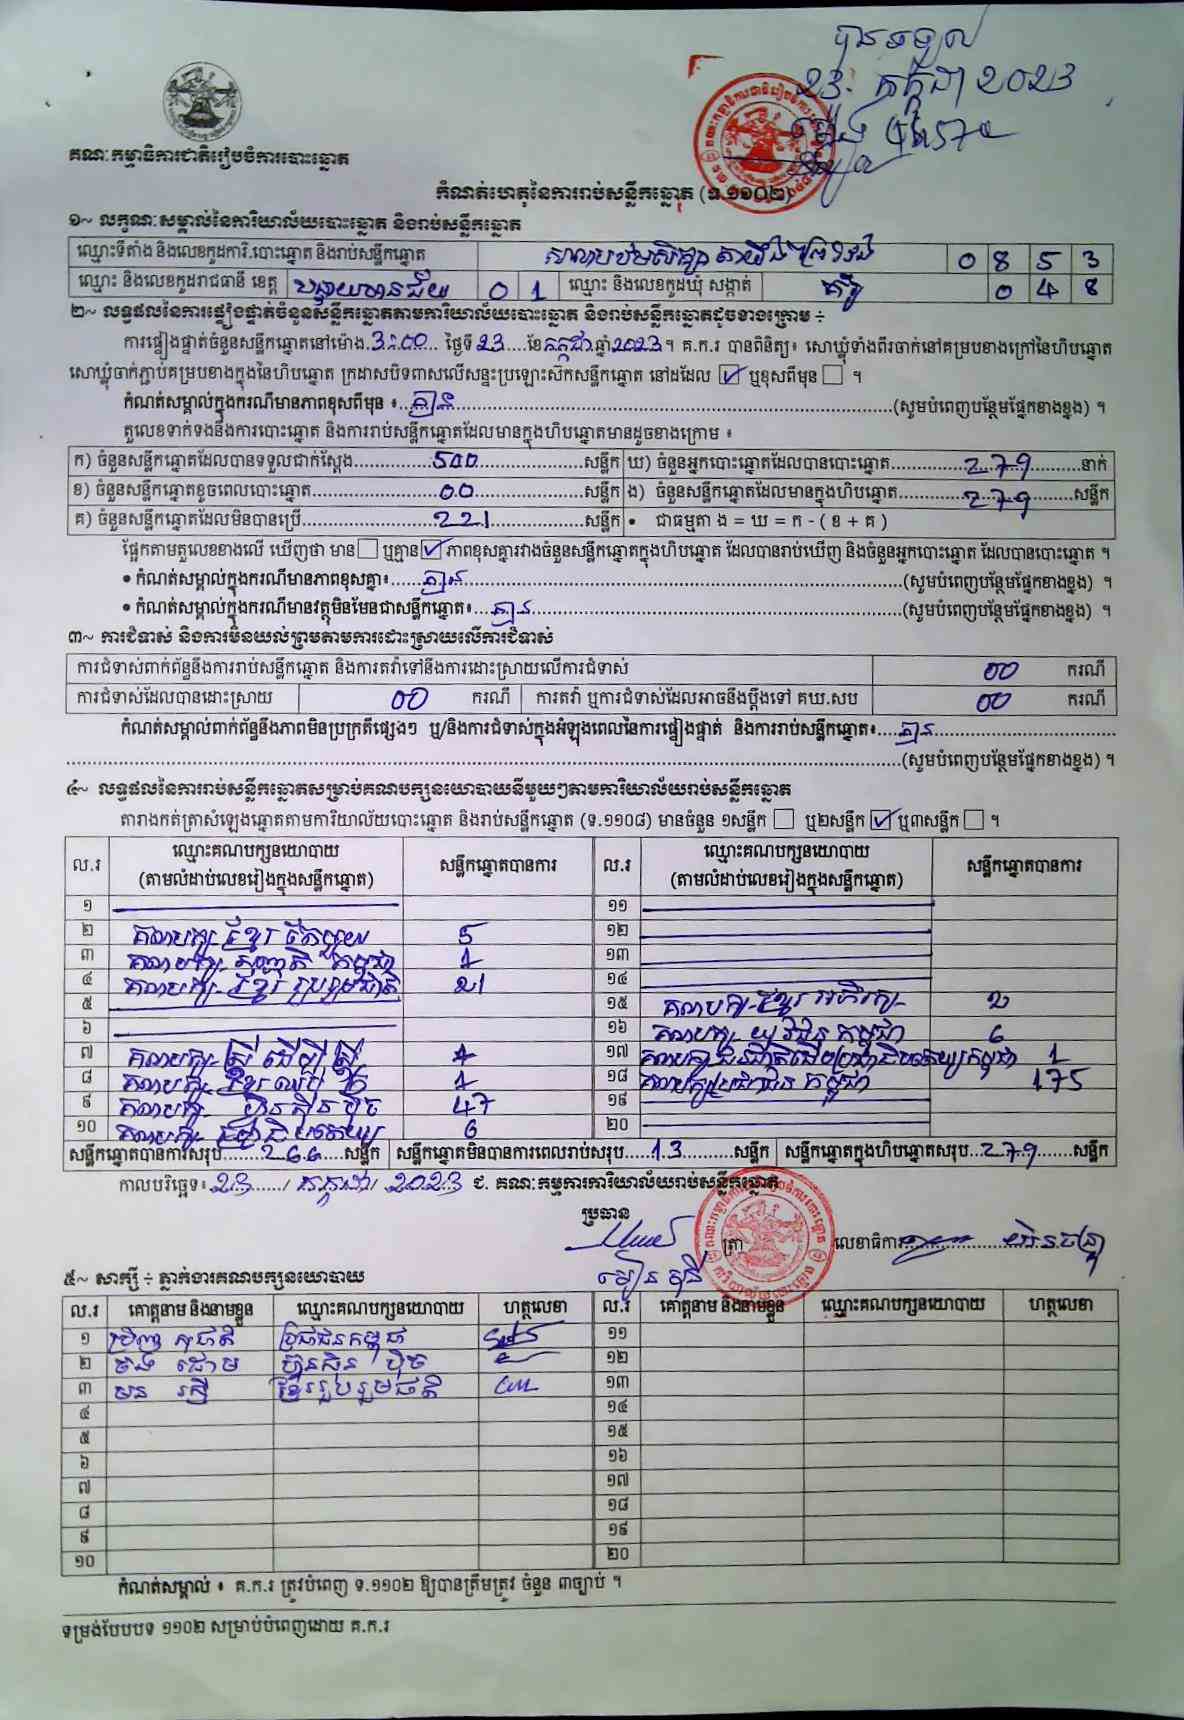 បានទទួល
23. កក្កដា 2023
គណៈកម្មាធិការជាតិរៀបចំការបោះឆ្នោត
កំណត់ហេតុនៃការរាប់សន្លឹកឆ្នោត (ទ.១១០២)
១~ លក្ខណៈសម្គាល់នៃការិយាល័យបោះឆ្នោត និងរាប់សន្លឹកឆ្នោត
ឈ្មោះទីតាំង និងលេខកូដការិ.បោះឆ្នោត និងរាប់សន្លឹកឆ្នោត សាលាបឋមសិក្សា 0 8 5 3
ឈ្មោះ និងលេខកូដរាជធានី ខេត្ត បន្ទាយមានជ័យ 0 1 ឈ្មោះ និងលេខកូដឃុំ សង្កាត់ 0 4 8
២~ លទ្ធផលនៃការផ្ទៀងផ្ទាត់ចំនួនសន្លឹកឆ្នោតតាមការិយាល័យបោះឆ្នោត និងរាប់សន្លឹកឆ្នោតដូចខាងក្រោម ÷
ការផ្ទៀងផ្ទាត់ចំនួនសន្លឹកឆ្នោតនៅម៉ោង.3:00... ថ្ងៃទី 23....ខែ កក្កដា ឆ្នាំ 2023។ គ.ក.រ បានពិនិត្យ៖ សោឃ្លុំទាំងពីរចាក់នៅគម្របខាងក្រៅនៃហិបឆ្នោត
សោឃ្លុំចាក់ភ្ជាប់គម្របខាងក្នុងនៃហិបឆ្នោត ក្រដាសបិទពាសលើសន្ទះប្រឡោះស៊កសន្លឹកឆ្នោត នៅដដែល ☑ ឬខុសពីមុន ☐ ។
កំណត់សម្គាល់ក្នុងករណីមានភាពខុសពីមុន ៖..គ្មាន....(សូមបំពេញបន្ថែមផ្នែកខាងខ្នង) ។
តួលេខទាក់ទងនឹងការបោះឆ្នោត និងការរាប់សន្លឹកឆ្នោតដែលមានក្នុងហិបឆ្នោតមានដូចខាងក្រោម ៖
ក) ចំនួនសន្លឹកឆ្នោតដែលបានទទួលជាក់ស្តែង......500......សន្លឹក ឃ) ចំនួនអ្នកបោះឆ្នោតដែលបានបោះឆ្នោត......279......នាក់
ខ) ចំនួនសន្លឹកឆ្នោតខូចពេលបោះឆ្នោត......00......សន្លឹក ង) ចំនួនសន្លឹកឆ្នោតដែលមានក្នុងហិបឆ្នោត......279......សន្លឹក
គ) ចំនួនសន្លឹកឆ្នោតដែលមិនបានប្រើ......221......សន្លឹក • ជាធម្មតា ង = ឃ = ក - ( ខ + គ )
ផ្អែកតាមតួលេខខាងលើ ឃើញថា មាន ☐ ឬគ្មាន ☑ ភាពខុសគ្នារវាងចំនួនសន្លឹកឆ្នោតក្នុងហិបឆ្នោត ដែលបានរាប់ឃើញ និងចំនួនអ្នកបោះឆ្នោត ដែលបានបោះឆ្នោត ។
• កំណត់សម្គាល់ក្នុងករណីមានភាពខុសគ្នា៖......គ្មាន......(សូមបំពេញបន្ថែមផ្នែកខាងខ្នង) ។
• កំណត់សម្គាល់ក្នុងករណីមានវត្ថុមិនមែនជាសន្លឹកឆ្នោត៖...គ្មាន......(សូមបំពេញបន្ថែមផ្នែកខាងខ្នង) ។
៣~ ការជំទាស់ និងការមិនយល់ព្រមតាមការដោះស្រាយលើការជំទាស់
ការជំទាស់ពាក់ព័ន្ធនឹងការរាប់សន្លឹកឆ្នោត និងការតវ៉ាទៅនឹងការដោះស្រាយលើការជំទាស់ 00 ករណី
ការជំទាស់ដែលបានដោះស្រាយ 00 ករណី ការតវ៉ា ឬការជំទាស់ដែលអាចនឹងប្តឹងទៅ គឃ.សប 00 ករណី
កំណត់សម្គាល់ពាក់ព័ន្ធនឹងភាពមិនប្រក្រតីផ្សេងៗ ឬ/និងការជំទាស់ក្នុងអំឡុងពេលនៃការផ្ទៀងផ្ទាត់ និងការរាប់សន្លឹកឆ្នោត៖....គ្មាន......
......(សូមបំពេញបន្ថែមផ្នែកខាងខ្នង) ។
៤~ លទ្ធផលនៃការរាប់សន្លឹកឆ្នោតសម្រាប់គណបក្សនយោបាយនីមួយៗតាមការិយាល័យរាប់សន្លឹកឆ្នោត
តារាងកត់ត្រាសំឡេងឆ្នោតតាមការិយាល័យបោះឆ្នោត និងរាប់សន្លឹកឆ្នោត (ទ.១១០៨) មានចំនួន ១សន្លឹក ☐ ឬ២សន្លឹក ☑ ឬ៣សន្លឹក ☐ ។
ល.រ ឈ្មោះគណបក្សនយោបាយ (តាមលំដាប់លេខរៀងក្នុងសន្លឹកឆ្នោត) សន្លឹកឆ្នោតបានការ ល.រ ឈ្មោះគណបក្សនយោបាយ (តាមលំដាប់លេខរៀងក្នុងសន្លឹកឆ្នោត) សន្លឹកឆ្នោតបានការ
១ ១១
២ គណបក្ស ខ្មែរ តែមួយ 5 ១២
៣ គណបក្ស សញ្ជាតិ កម្ពុជា 1 ១៣
៤ គណបក្ស ខ្មែរ រួបរួមជាតិ 21 ១៤
៥ ១៥ គណបក្ស ខ្មែរ អភិរក្ស 2
៦ ១៦ គណបក្ស យុវជន កម្ពុជា 6
៧ គណបក្ស ស្ត្រី ដើម្បី ស្ត្រី 1 ១៧ គណបក្ស ជនជាតិដើមប្រជាធិបតេយ្យកម្ពុជា 1
៨ គណបក្ស ខ្មែរ ឈប់ ក្រ 1 ១៨ គណបក្ស ប្រជាជន កម្ពុជា 175
៩ គណបក្ស ហ៊្វុនស៊ិនប៉ិច 47 ១៩
១០ គណបក្ស ប្រជាធិបតេយ្យ 6 ២០
សន្លឹកឆ្នោតបានការសរុប......266....សន្លឹក សន្លឹកឆ្នោតមិនបានការពេលរាប់សរុប....13......សន្លឹក សន្លឹកឆ្នោតក្នុងហិបឆ្នោតសរុប..279......សន្លឹក
កាលបរិច្ឆេទ៖ 23 / កក្កដា / 2023 ជ. គណៈកម្មការការិយាល័យរាប់សន្លឹកឆ្នោត
ប្រធាន
ត្រា លេខាធិការ
៥~ សាក្សី ÷ ភ្នាក់ងារគណបក្សនយោបាយ
ល.រ គោត្តនាម និងនាមខ្លួន ឈ្មោះគណបក្សនយោបាយ ហត្ថលេខា ល.រ គោត្តនាម និងនាមខ្លួន ឈ្មោះគណបក្សនយោបាយ ហត្ថលេខា
១ ប្រជាជនកម្ពុជា ១១
២ ហ៊្វុនស៊ិន ប៉ិច ១២
៣ ខ្មែររួបរួមជាតិ ១៣
៤ ១៤
៥ ១៥
៦ ១៦
៧ ១៧
៨ ១៨
៩ ១៩
១០ ២០
កំណត់សម្គាល់ ៖ គ.ក.រ ត្រូវបំពេញ ទ.១១០២ ឱ្យបានត្រឹមត្រូវ ចំនួន ៣ច្បាប់ ។
ទម្រង់បែបបទ ១១០២ សម្រាប់បំពេញដោយ គ.ក.រ